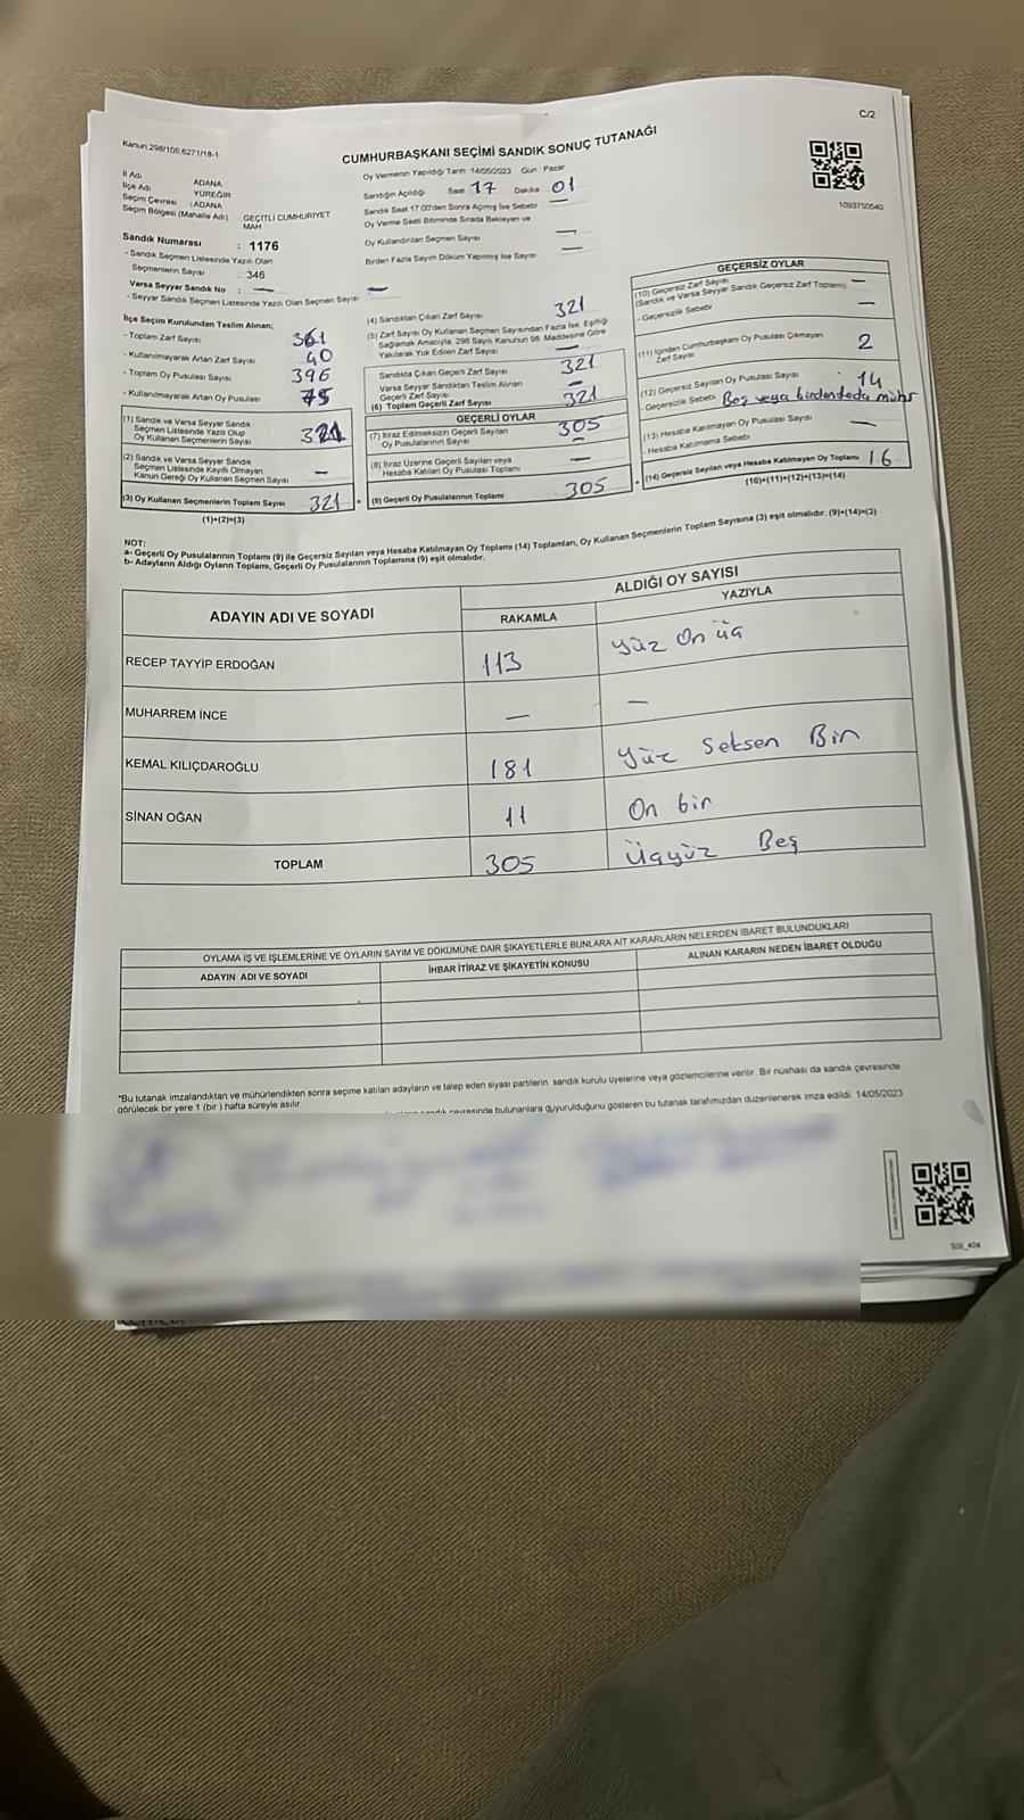 C/2
Kanun:298/106.6271/18-1
CUMHURBAŞKANI SEÇİMİ SANDIK SONUÇ TUTANAĞI
1093750540
İl Adı ADANA
İlçe Adı YÜREĞİR
Seçim Çevresi : ADANA
Seçim Bölgesi (Mahalle Adı) GEÇİTLİ CUMHURİYET MAH
Sandık Numarası : 1176
- Sandık Seçmen Listesinde Yazılı Olan
Seçmenlerin Sayısı : 346
Varsa Seyyar Sandık No : —
- Seyyar Sandık Seçmen Listesinde Yazılı Olan Seçmen Sayısı —
Oy Vermenin Yapıldığı Tarih 14/05/2023 Gün : Pazar
Sandığın Açıldığı Saat 17 Dakika 01
Sandık Saat 17:00'den Sonra Açılmış İse Sebebi —
Oy Verme Saati Bitiminde Sırada Bekleyen ve
Oy Kullandırılan Seçmen Sayısı —
Birden Fazla Sayım Döküm Yapılmış İse Sayısı —
İlçe Seçim Kurulundan Teslim Alınan;
- Toplam Zarf Sayısı 361
- Kullanılmayarak Artan Zarf Sayısı 40
- Toplam Oy Pusulası Sayısı 396
- Kullanılmayarak Artan Oy Pusulası 75
(1) Sandık ve Varsa Seyyar Sandık
Seçmen Listesinde Yazılı Olup
Oy Kullanan Seçmenlerin Sayısı 321
(2) Sandık ve Varsa Seyyar Sandık
Seçmen Listesinde Kayıtlı Olmayan
Kanun Gereği Oy Kullanan Seçmen Sayısı —
(3) Oy Kullanan Seçmenlerin Toplam Sayısı 321
(1)+(2)=(3)
(4) Sandıktan Çıkan Zarf Sayısı 321
(5) Zarf Sayısı Oy Kullanan Seçmen Sayısından Fazla İse, Eşitliği
Sağlamak Amacıyla, 298 Sayılı Kanunun 98. Maddesine Göre
Yakılarak Yok Edilen Zarf Sayısı —
Sandıkta Çıkan Geçerli Zarf Sayısı 321
Varsa Seyyar Sandıktan Teslim Alınan
Geçerli Zarf Sayısı —
(6) Toplam Geçerli Zarf Sayısı 321
GEÇERLİ OYLAR
(7) İtiraz Edilmeksizin Geçerli Sayılan
Oy Pusulalarının Sayısı 305
(8) İtiraz Üzerine Geçerli Sayılan veya
Hesaba Katılan Oy Pusulası Toplamı —
(9) Geçerli Oy Pusulalarının Toplamı 305
GEÇERSİZ OYLAR
(10) Geçersiz Zarf Sayısı
(Sandık ve Varsa Seyyar Sandık Geçersiz Zarf Toplamı) —
- Geçersizlik Sebebi —
(11) İçinden Cumhurbaşkanı Oy Pusulası Çıkmayan
Zarf Sayısı 2
(12) Geçersiz Sayılan Oy Pusulası Sayısı 14
Geçersizlik Sebebi Boş veya birden
(13) Hesaba Katılmayan Oy Pusulası Sayısı —
- Hesaba Katılmama Sebebi
(14) Geçersiz Sayılan veya Hesaba Katılmayan Oy Toplamı 16
(10)+(11)+(12)+(13)=(14)
NOT:
a- Geçerli Oy Pusulalarının Toplamı (9) ile Geçersiz Sayılan veya Hesaba Katılmayan Oy Toplamı (14) Toplamları, Oy Kullanan Seçmenlerin Toplam Sayısına (3) eşit olmalıdır. (9)+(14)=(3)
b- Adayların Aldığı Oyların Toplamı, Geçerli Oy Pusulalarının Toplamına (9) eşit olmalıdır.
ADAYIN ADI VE SOYADI ALDIĞI OY SAYISI
RAKAMLA YAZIYLA
RECEP TAYYİP ERDOĞAN 113 Yüz On üç
MUHARREM İNCE — —
KEMAL KILIÇDAROĞLU 181 Yüz Seksen Bir
SİNAN OĞAN 11 On bir
TOPLAM 305 Üçyüz Beş
OYLAMA İŞ VE İŞLEMLERİNE VE OYLARIN SAYIM VE DÖKÜMÜNE DAİR ŞİKAYETLERLE BUNLARA AİT KARARLARIN NELERDEN İBARET BULUNDUKLARI
ADAYIN ADI VE SOYADI İHBAR İTİRAZ VE ŞİKAYETİN KONUSU ALINAN KARARIN NEDEN İBARET OLDUĞU
*Bu tutanak imzalandıktan ve mühürlendikten sonra seçime katılan adayların ve talep eden siyasi partilerin sandık kurulu üyelerine veya gözlemcilerine verilir. Bir nüshası da sandık çevresinde
görülecek bir yere 1 (bir) hafta süreyle asılır.
sandık çevresinde bulunanlara duyurulduğunu gösteren bu tutanak tarafımızdan düzenlenerek imza edildi. 14/05/2023